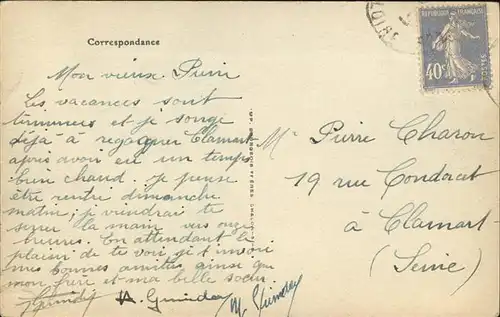 Correspondance
RÉPUBLIQUE FRANÇAISE
40c
POSTES
Mon vieux Pierre
Les vacances sont
terminées et je songe
déjà à regagner Clamart
après avoir eu un temps
bien chaud. Je pense
être rentré dimanche
matin; je viendrai te
serrer la main vers onze
heures. En attendant le
plaisir de te voir je t'envoi
mes bonnes amitiés ainsi que
mon frère et ma belle soeur.
Mr Pierre Charon
19 rue Condorcet
à Clamart
(Seine)